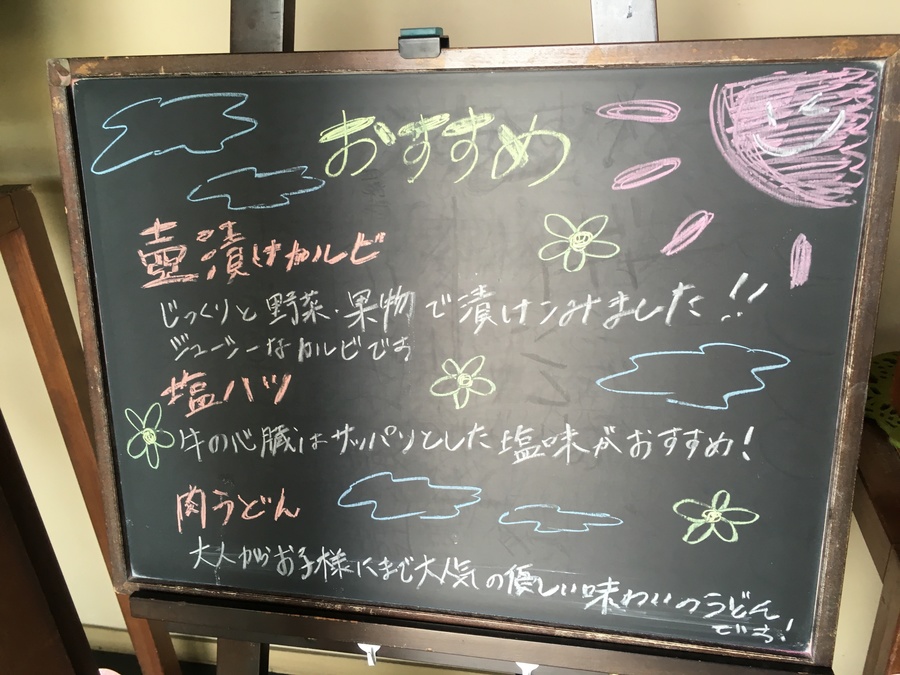 おすすめ
壺漬けカルビ
じっくりと野菜・果物で漬けこみました!!
ジューシーなカルビです
塩ハツ
牛の心臓はサッパリとした塩味がおすすめ!
肉うどん
大人からお子様にまで大人気の優しい味わいのうどん
です!